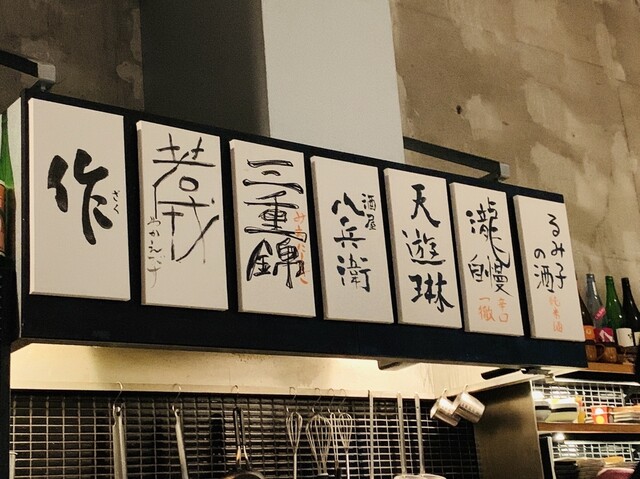 作
ざく
若戎
わかえびす
三重錦
酒屋
八兵衛
天遊琳
瀧自慢
辛口
一徹
るみ子
の酒
純米酒